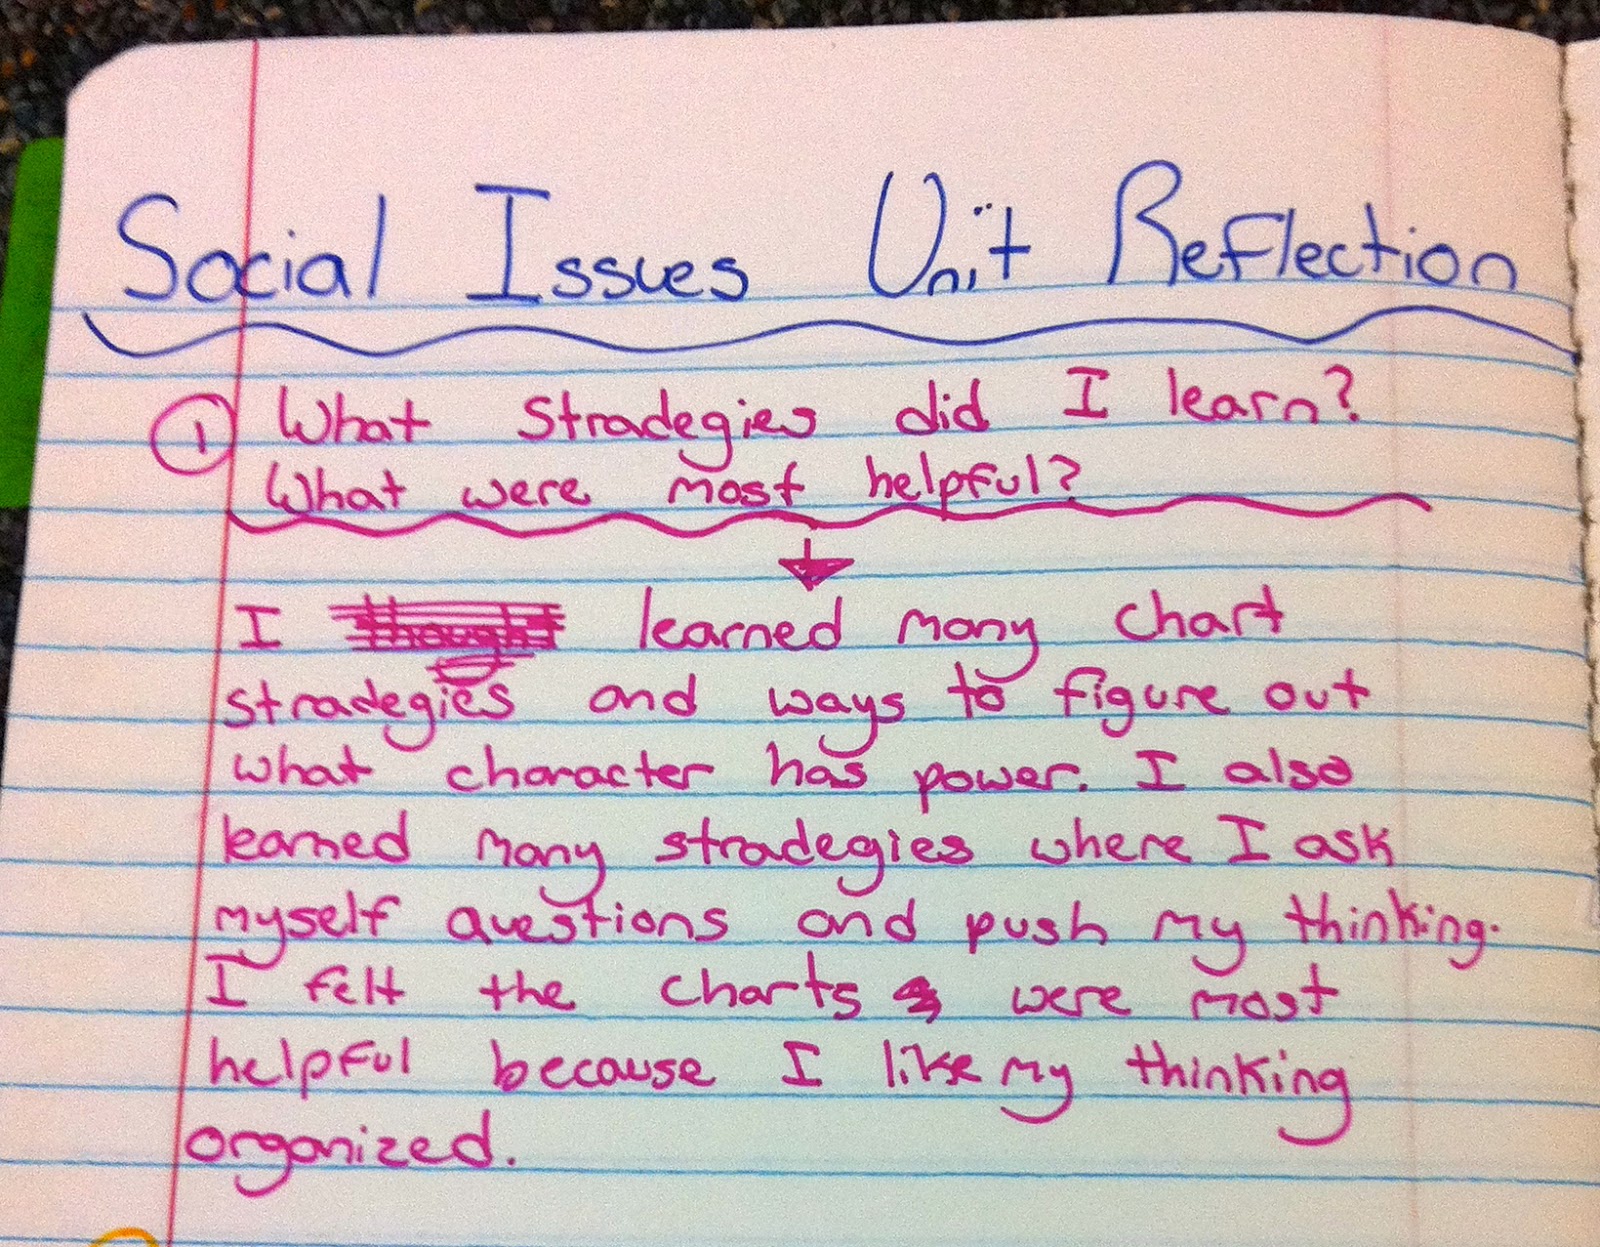 Social Issues Unit Reflection
① What stradegies did I learn?
What were most helpful?
I learned many chart
stradegies and ways to figure out
what character has power. I also
learned many stradegies where I ask
myself questions and push my thinking.
I felt the charts were most
helpful because I like my thinking
organized.